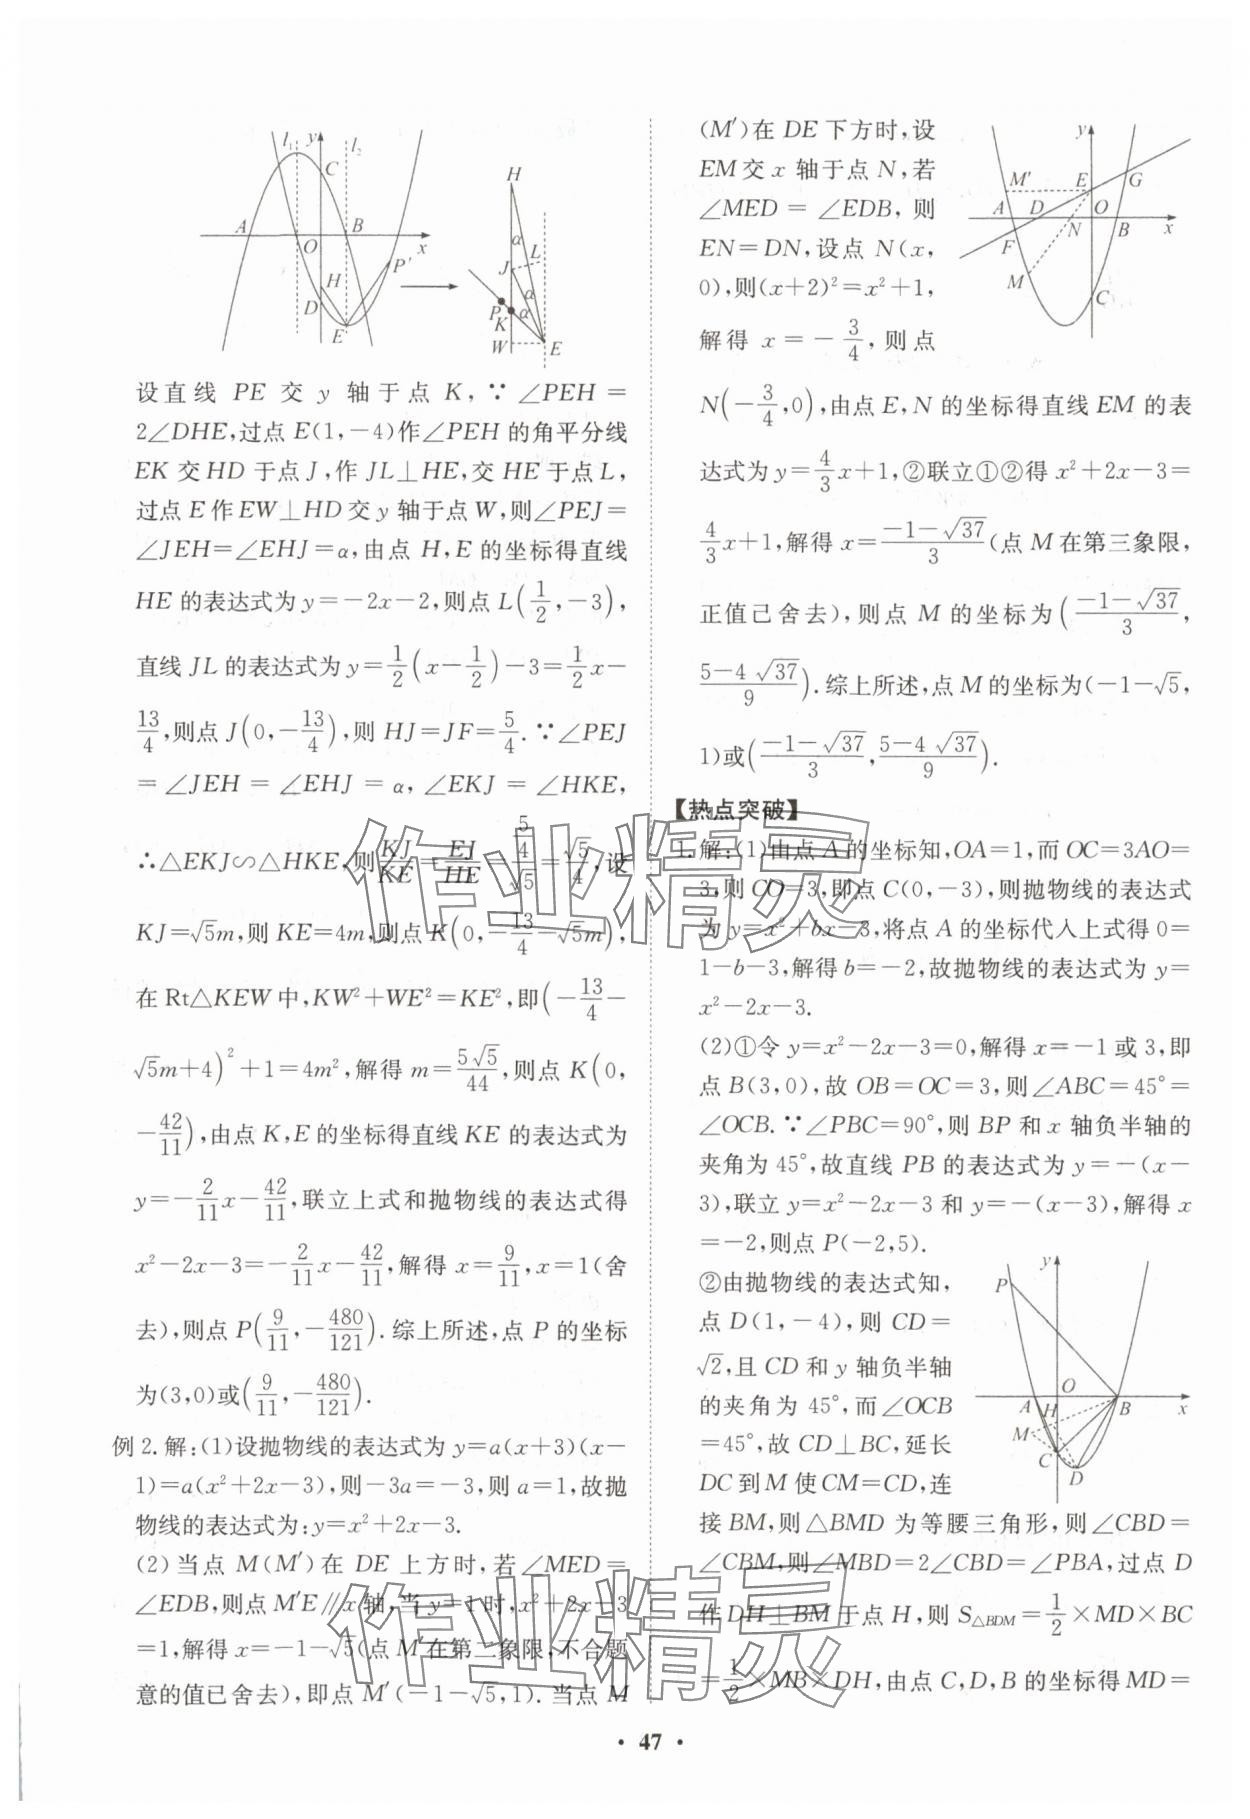 设直线 PE 交 y 轴于点 K,∵∠PEH=
2∠DHE,过点 E(1,-4)作∠PEH 的角平分线
EK 交 HD 于点 J,作 JL⊥HE,交 HE 于点 L,
过点 E 作 EW⊥HD 交 y 轴于点 W,则∠PEJ=
∠JEH=∠EHJ=α,由点 H,E 的坐标得直线
HE 的表达式为 y=-2x-2,则点 L(1/2,-3),
直线 JL 的表达式为 y=1/2(x-1/2)-3=1/2x-
13/4,则点 J(0,-13/4),则 HJ=JF=5/4.∵∠PEJ
=∠JEH=∠EHJ=α,∠EKJ=∠HKE,
∴△EKJ∽△HKE,则KJ/KE=EJ/HE=(5/4)/√5=√5/4,设
KJ=√5m,则 KE=4m,则点 K(0,-13/4-√5m),
在 Rt△KEW 中,KW²+WE²=KE²,即(-13/4-
√5m+4)²+1=4m²,解得 m=5√5/44,则点 K(0,
-42/11),由点 K,E 的坐标得直线 KE 的表达式为
y=-2/11x-42/11,联立上式和抛物线的表达式得
x²-2x-3=-2/11x-42/11,解得 x=9/11,x=1(舍
去),则点 P(9/11,-480/121).综上所述,点 P 的坐标
为(3,0)或(9/11,-480/121).
例 2.解:(1)设抛物线的表达式为 y=a(x+3)(x-
1)=a(x²+2x-3),则-3a=-3,则 a=1,故抛
物线的表达式为:y=x²+2x-3.
(2)当点 M(M′)在 DE 上方时,若∠MED=
∠EDB,则点 M′E∥x 轴,当 y=1 时,x²+2x-3
=1,解得 x=-1-√5(点 M′在第二象限,不合题
意的值已舍去),即点 M′(-1-√5,1).当点 M
(M′)在 DE 下方时,设
EM 交 x 轴于点 N,若
∠MED=∠EDB,则
EN=DN,设点 N(x,
0),则(x+2)²=x²+1,
解得 x=-3/4,则点
N(-3/4,0),由点 E,N 的坐标得直线 EM 的表
达式为 y=4/3x+1,②联立①②得 x²+2x-3=
4/3x+1,解得 x=(-1-√37)/3(点 M 在第三象限,
正值已舍去),则点 M 的坐标为((-1-√37)/3,
(5-4√37)/9).综上所述,点 M 的坐标为(-1-√5,
1)或((-1-√37)/3,(5-4√37)/9).
【热点突破】
1.解:(1)由点 A 的坐标知,OA=1,而 OC=3AO=
3,则 CO=3,即点 C(0,-3),则抛物线的表达式
为 y=x²+bx-3,将点 A 的坐标代入上式得 0=
1-b-3,解得 b=-2,故抛物线的表达式为 y=
x²-2x-3.
(2)①令 y=x²-2x-3=0,解得 x=-1 或 3,即
点 B(3,0),故 OB=OC=3,则∠ABC=45°=
∠OCB.∵∠PBC=90°,则 BP 和 x 轴负半轴的
夹角为 45°,故直线 PB 的表达式为 y=-(x-
3),联立 y=x²-2x-3 和 y=-(x-3),解得 x
=-2,则点 P(-2,5).
②由抛物线的表达式知,
点 D(1,-4),则 CD=
√2,且 CD 和 y 轴负半轴
的夹角为 45°,而∠OCB
=45°,故 CD⊥BC,延长
DC 到 M 使 CM=CD,连
接 BM,则△BMD 为等腰三角形,则∠CBD=
∠CBM,则∠MBD=2∠CBD=∠PBA,过点 D
作 DH⊥BM 于点 H,则 S△BDM=1/2×MD×BC
=1/2×MB×DH,由点 C,D,B 的坐标得 MD=
• 47 •
作业精灵
作业精灵